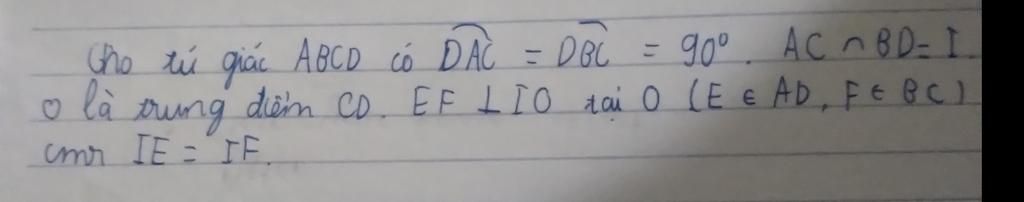 Cho tứ giác ABCD có \widehat{DAC} = \widehat{DBC} = 90°. AC ∩ BD = I.
O là trung điểm CD. EF ⊥ IO tại O (E ∈ AD, F ∈ BC)
cmr IE = IF.